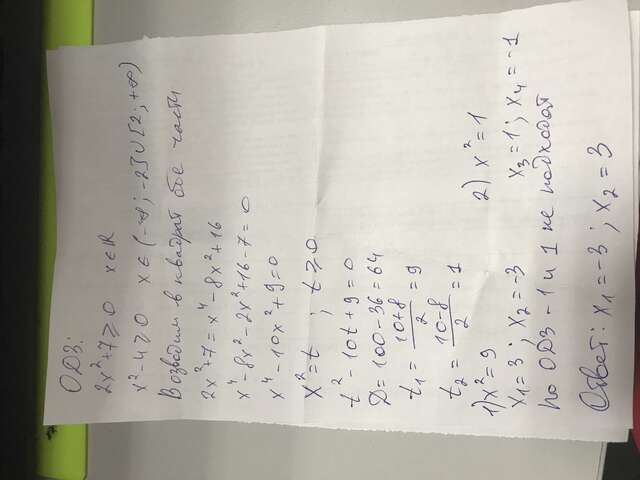 ОДЗ:
2x²+7≥0 x∈R
x²-4≥0 x∈(-∞; -2]∪[2; +∞)
Возводим в квадрат обе части
2x²+7=x⁴-8x²+16
x⁴-8x²-2x²+16-7=0
x⁴-10x²+9=0
x²=t ; t≥0
t²-10t+9=0
D=100-36=64
t₁=(10+8)/2=9
t₂=(10-8)/2=1
1) x²=9 2) x²=1
x₁=3; x₂=-3 x₃=1; x₄=-1
по ОДЗ -1 и 1 не подходят
Ответ: x₁=-3; x₂=3